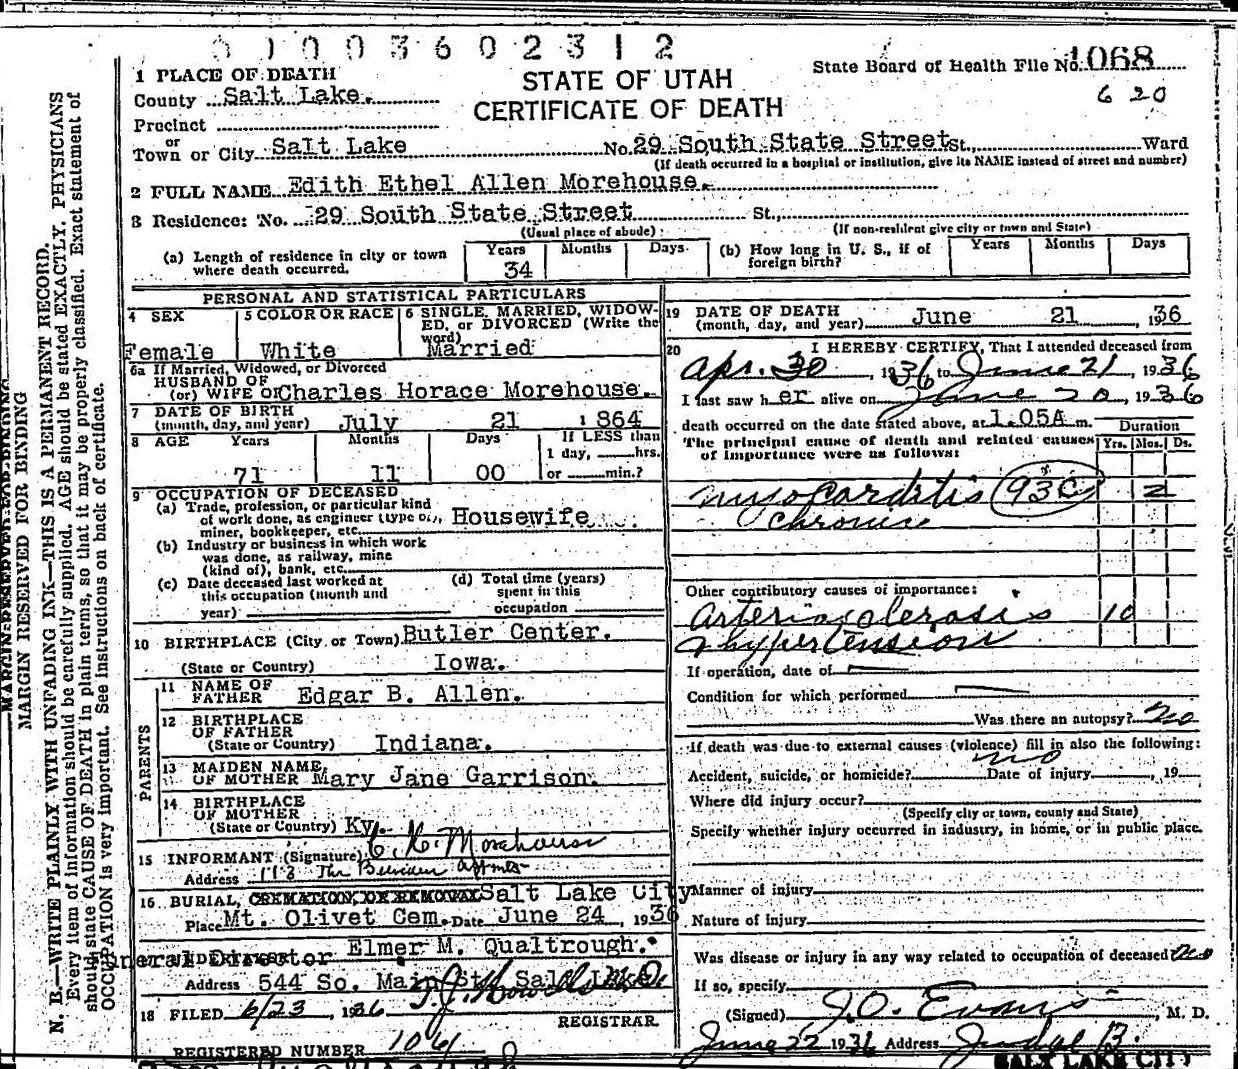 0 1 0 0 3 6 0 2 3 1 2
1 PLACE OF DEATH
County Salt Lake.
Precinct
or
Town or City Salt Lake No. 29 South State Street St., Ward
(If death occurred in a hospital or institution, give its NAME instead of street and number)
STATE OF UTAH
CERTIFICATE OF DEATH
State Board of Health File No. 1068
620
2 FULL NAME Edith Ethel Allen Morehouse.
3 Residence: No. 29 South State Street St.,
(Usual place of abode) (If non-resident give city or town and State)
(a) Length of residence in city or town where death occurred. Years 34 Months Days
(b) How long in U. S., if of foreign birth? Years Months Days
PERSONAL AND STATISTICAL PARTICULARS
4 SEX Female
5 COLOR OR RACE White
6 SINGLE, MARRIED, WIDOWED, or DIVORCED (Write the word) Married
6a If Married, Widowed, or Divorced
HUSBAND OF
(or) WIFE OF Charles Horace Morehouse.
7 DATE OF BIRTH
(month, day, and year) July 21 1864
8 AGE Years 71 Months 11 Days 00 If LESS than 1 day, hrs. or min.?
9 OCCUPATION OF DECEASED
(a) Trade, profession, or particular kind
of work done, as engineer (type of), Housewife
miner, bookkeeper, etc.
(b) Industry or business in which work
was done, as railway, mine
(kind of), bank, etc.
(c) Date deceased last worked at
this occupation (month and
year)
(d) Total time (years)
spent in this
occupation
10 BIRTHPLACE (City or Town) Butler Center.
(State or Country) Iowa.
PARENTS
11 NAME OF
FATHER Edgar B. Allen.
12 BIRTHPLACE
OF FATHER
(State or Country) Indiana.
13 MAIDEN NAME
OF MOTHER Mary Jane Garrison.
14 BIRTHPLACE
OF MOTHER
(State or Country) Ky.
15 INFORMANT (Signature) C. H. Morehouse
Address 113 The
16 BURIAL, CREMATION, OR REMOVAL Salt Lake City
Place Mt. Olivet Cem. Date June 24, 1936
Elmer M. Qualtrough.
Funeral Director
Address 544 So. Main St. Salt Lake
18 FILED 6/23, 1936
REGISTRAR
REGISTERED NUMBER 1061
19 DATE OF DEATH
(month, day, and year) June 21, 1936
20 I HEREBY CERTIFY, That I attended deceased from
Apr. 30, 1936 to June 21, 1936
I last saw her alive on June 20, 1936
death occurred on the date stated above, at 1.05A m. Duration
The principal cause of death and related causes Yrs. Mos. Ds.
of importance were as follows:
Myocarditis 93C 2
chronic
Other contributory causes of importance:
Arteriosclerosis 10
hypertension
If operation, date of
Condition for which performed
Was there an autopsy? No
If death was due to external causes (violence) fill in also the following:
no
Accident, suicide, or homicide? Date of injury, 19
Where did injury occur?
(Specify city or town, county and State)
Specify whether injury occurred in industry, in home, or in public place.
Manner of injury
Nature of injury
Was disease or injury in any way related to occupation of deceased? No
If so, specify
(Signed) J.O. Evans, M. D.
June 22 1936 Address Judge B.
SALT LAKE CITY
MARGIN RESERVED FOR BINDING
N. B.—WRITE PLAINLY WITH UNFADING INK—THIS IS A PERMANENT RECORD.
Every item of information should be carefully supplied. AGE should be stated EXACTLY. PHYSICIANS
should state CAUSE OF DEATH in plain terms, so that it may be properly classified. Exact statement of
OCCUPATION is very important. See instructions on back of certificate.